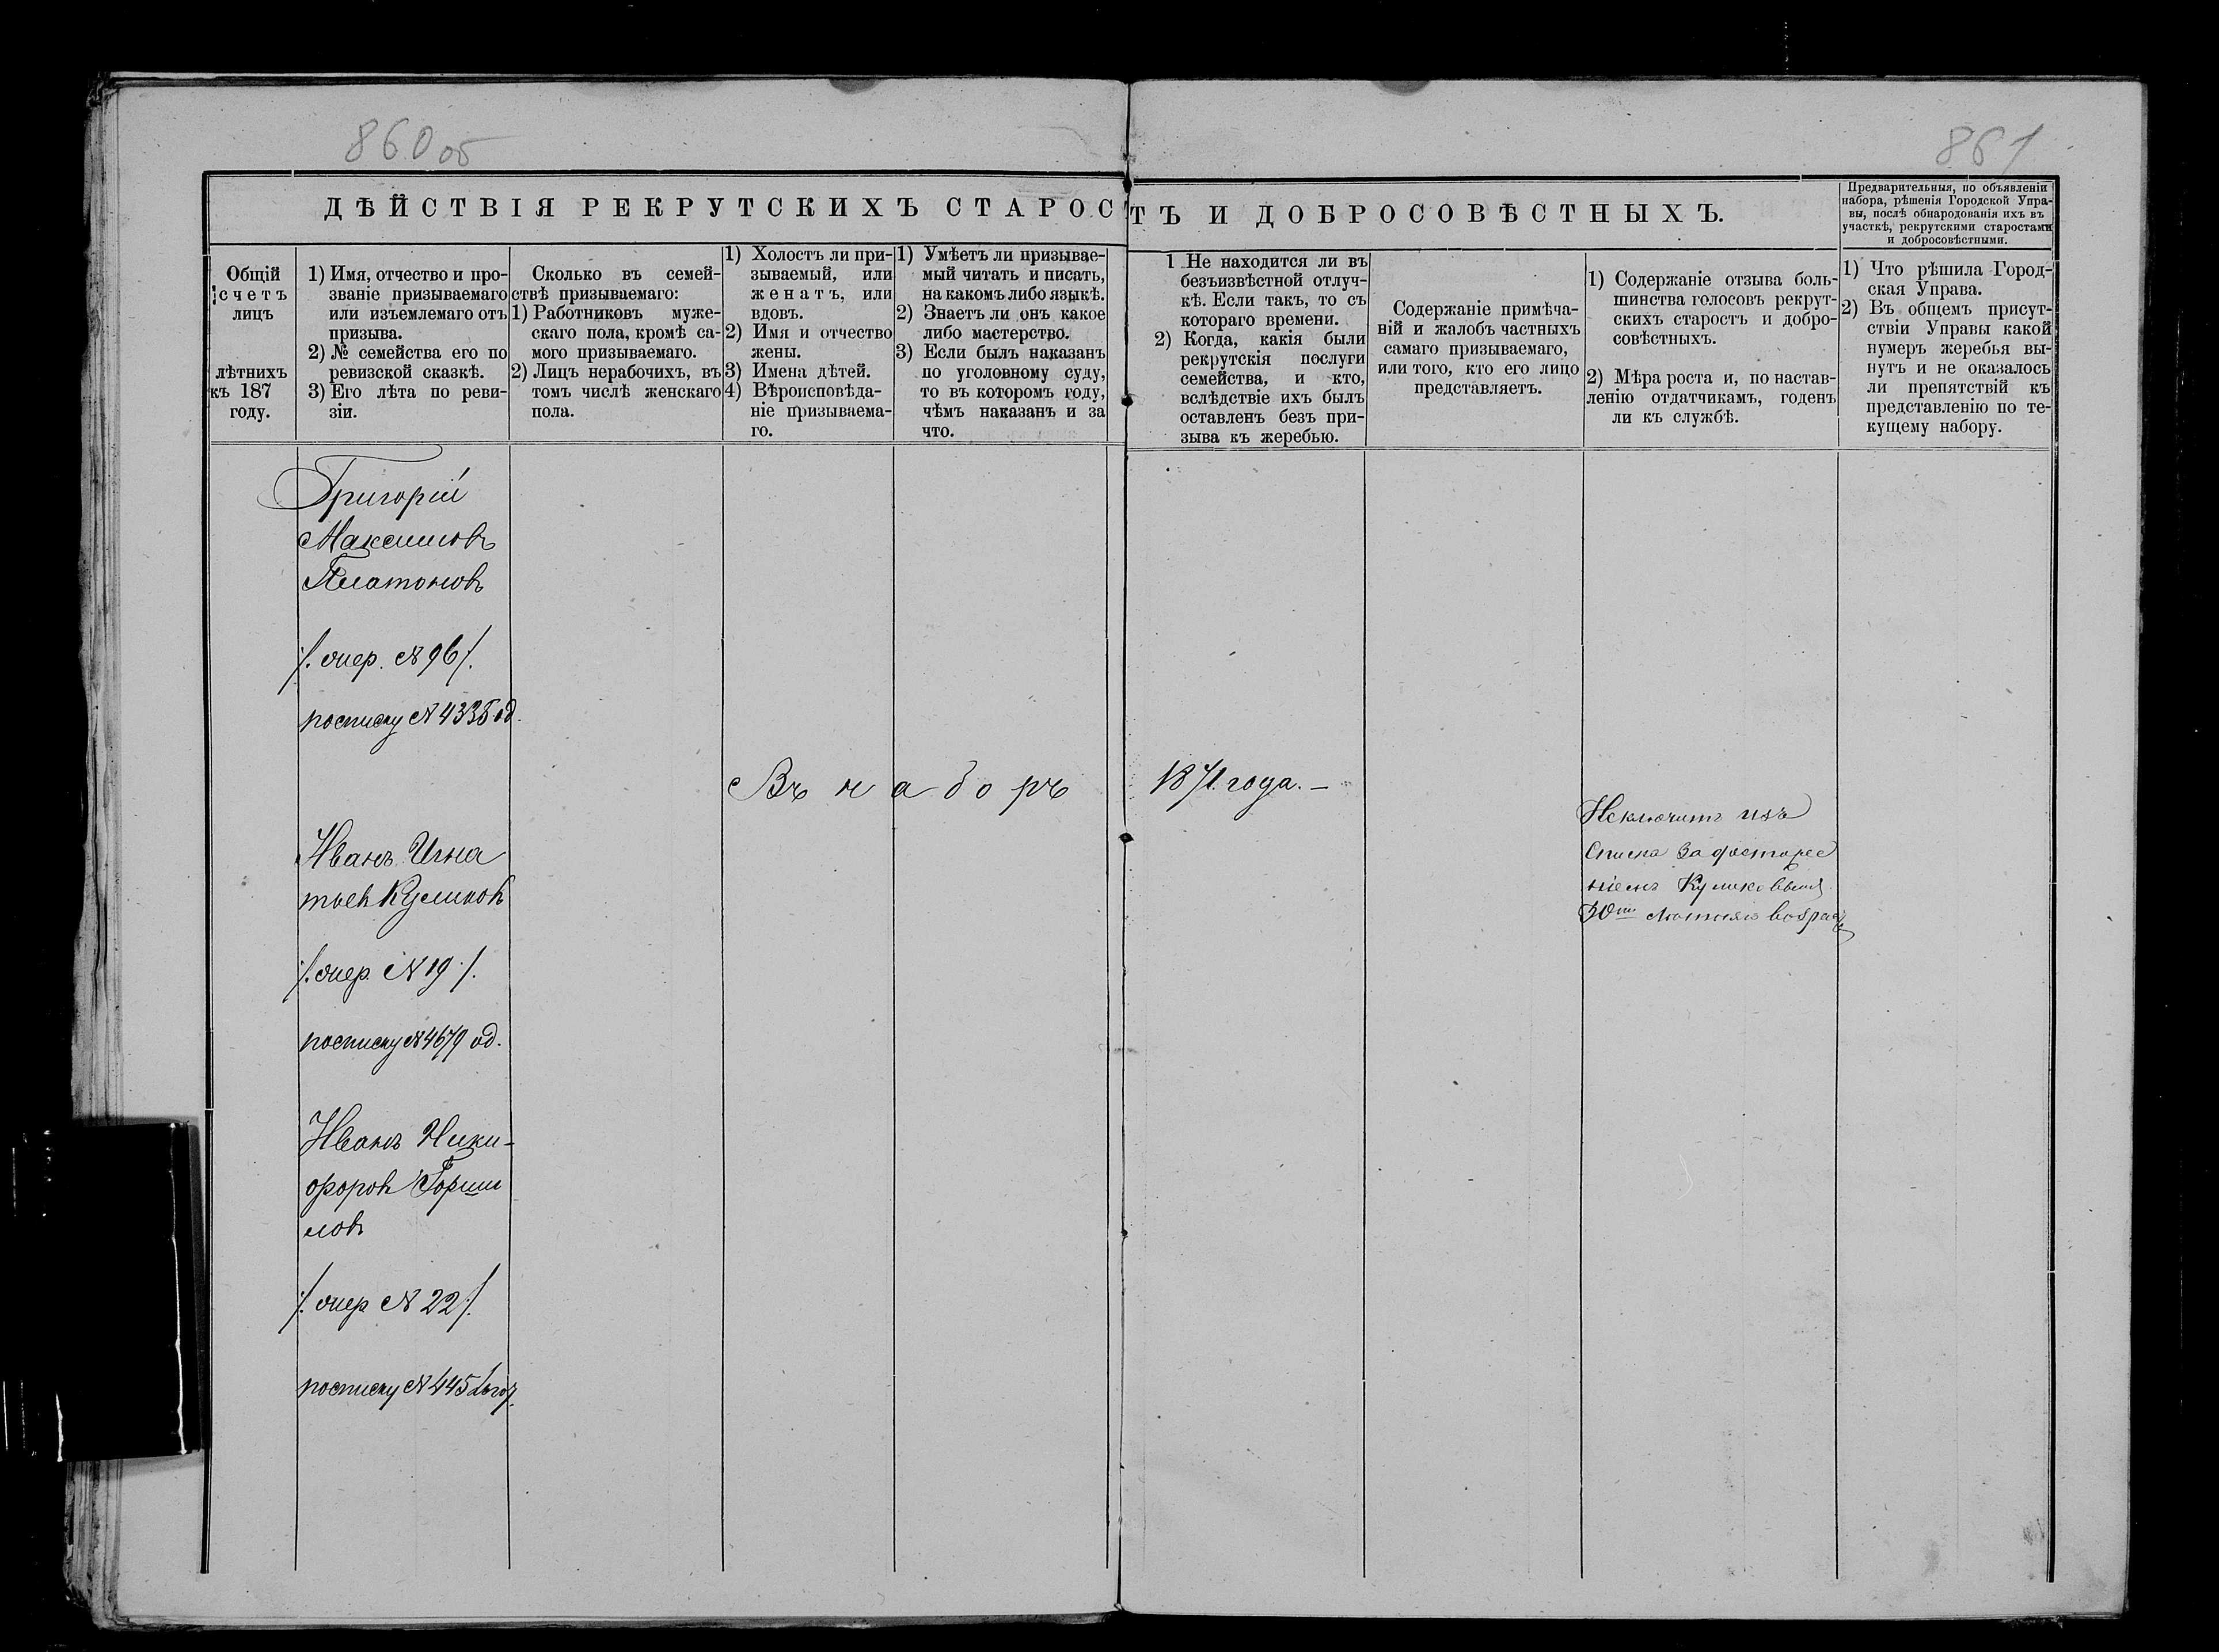 860 об
861
ДѢЙСТВІЯ РЕКРУТСКИХЪ СТАРОСТЪ И ДОБРОСОВѢСТНЫХЪ.
Предварительныя, по объявленіи
набора, рѣшенія Городской Упра-
вы, послѣ обнародованія ихъ въ
участкѣ, рекрутскими старостами
и добросовѣстными.
Общій
счетъ
лицъ
лѣтнихъ
къ 187
году.
1) Имя, отчество и про-
званіе призываемаго
или изъемлемаго отъ
призыва.
2) № семейства его по
ревизской сказкѣ.
3) Его лѣта по реви-
зіи.
Сколько въ семей-
ствѣ призываемаго:
1) Работниковъ муже-
скаго пола, кромѣ са-
мого призываемаго.
2) Лицъ нерабочихъ, въ
томъ числѣ женскаго
пола.
1) Холостъ ли при-
зываемый, или
женатъ, или
вдовъ.
2) Имя и отчество
жены.
3) Имена дѣтей.
4) Вѣроисповѣда-
ніе призываема-
го.
1) Умѣетъ ли призывае-
мый читать и писать,
на какомъ либо языкѣ.
2) Знаетъ ли онъ какое
либо мастерство.
3) Если былъ наказанъ
по уголовному суду,
то въ которомъ году,
чѣмъ наказанъ и за
что.
1 Не находится ли въ
безъизвѣстной отлуч-
кѣ. Если такъ, то съ
котораго времени.
2) Когда, какія были
рекрутскія послуги
семейства, и кто,
вслѣдствіе ихъ былъ
оставленъ безъ при-
зыва къ жеребью.
Содержаніе примѣча-
ній и жалобъ частныхъ
самаго призываемаго,
или того, кто его лицо
представляетъ.
1) Содержаніе отзыва боль-
шинства голосовъ рекрут-
скихъ старостъ и добро-
совѣстныхъ.
2) Мѣра роста и, по настав-
ленію отдатчикамъ, годенъ
ли къ службѣ.
1) Что рѣшила Город-
ская Управа.
2) Въ общемъ присут-
ствіи Управы какой
нумеръ жеребья вы-
нутъ и не оказалось
ли препятствій къ
представленію по те-
кущему набору.
Григорій
Максимовъ
Платоновъ
/. очер. № 96 /.
посписку № 4335 од.
Въ наборъ 1871. года. —
Иванъ Игна
тьевъ Куликовъ
/. очер. № 19 /.
посписку № 4679 од.
Исключить изъ
списка за
Куликовымъ
30ти лѣтняго возраста
Иванъ Ники-
форовъ
ловъ
/. очер № 22 /.
посписку № 445